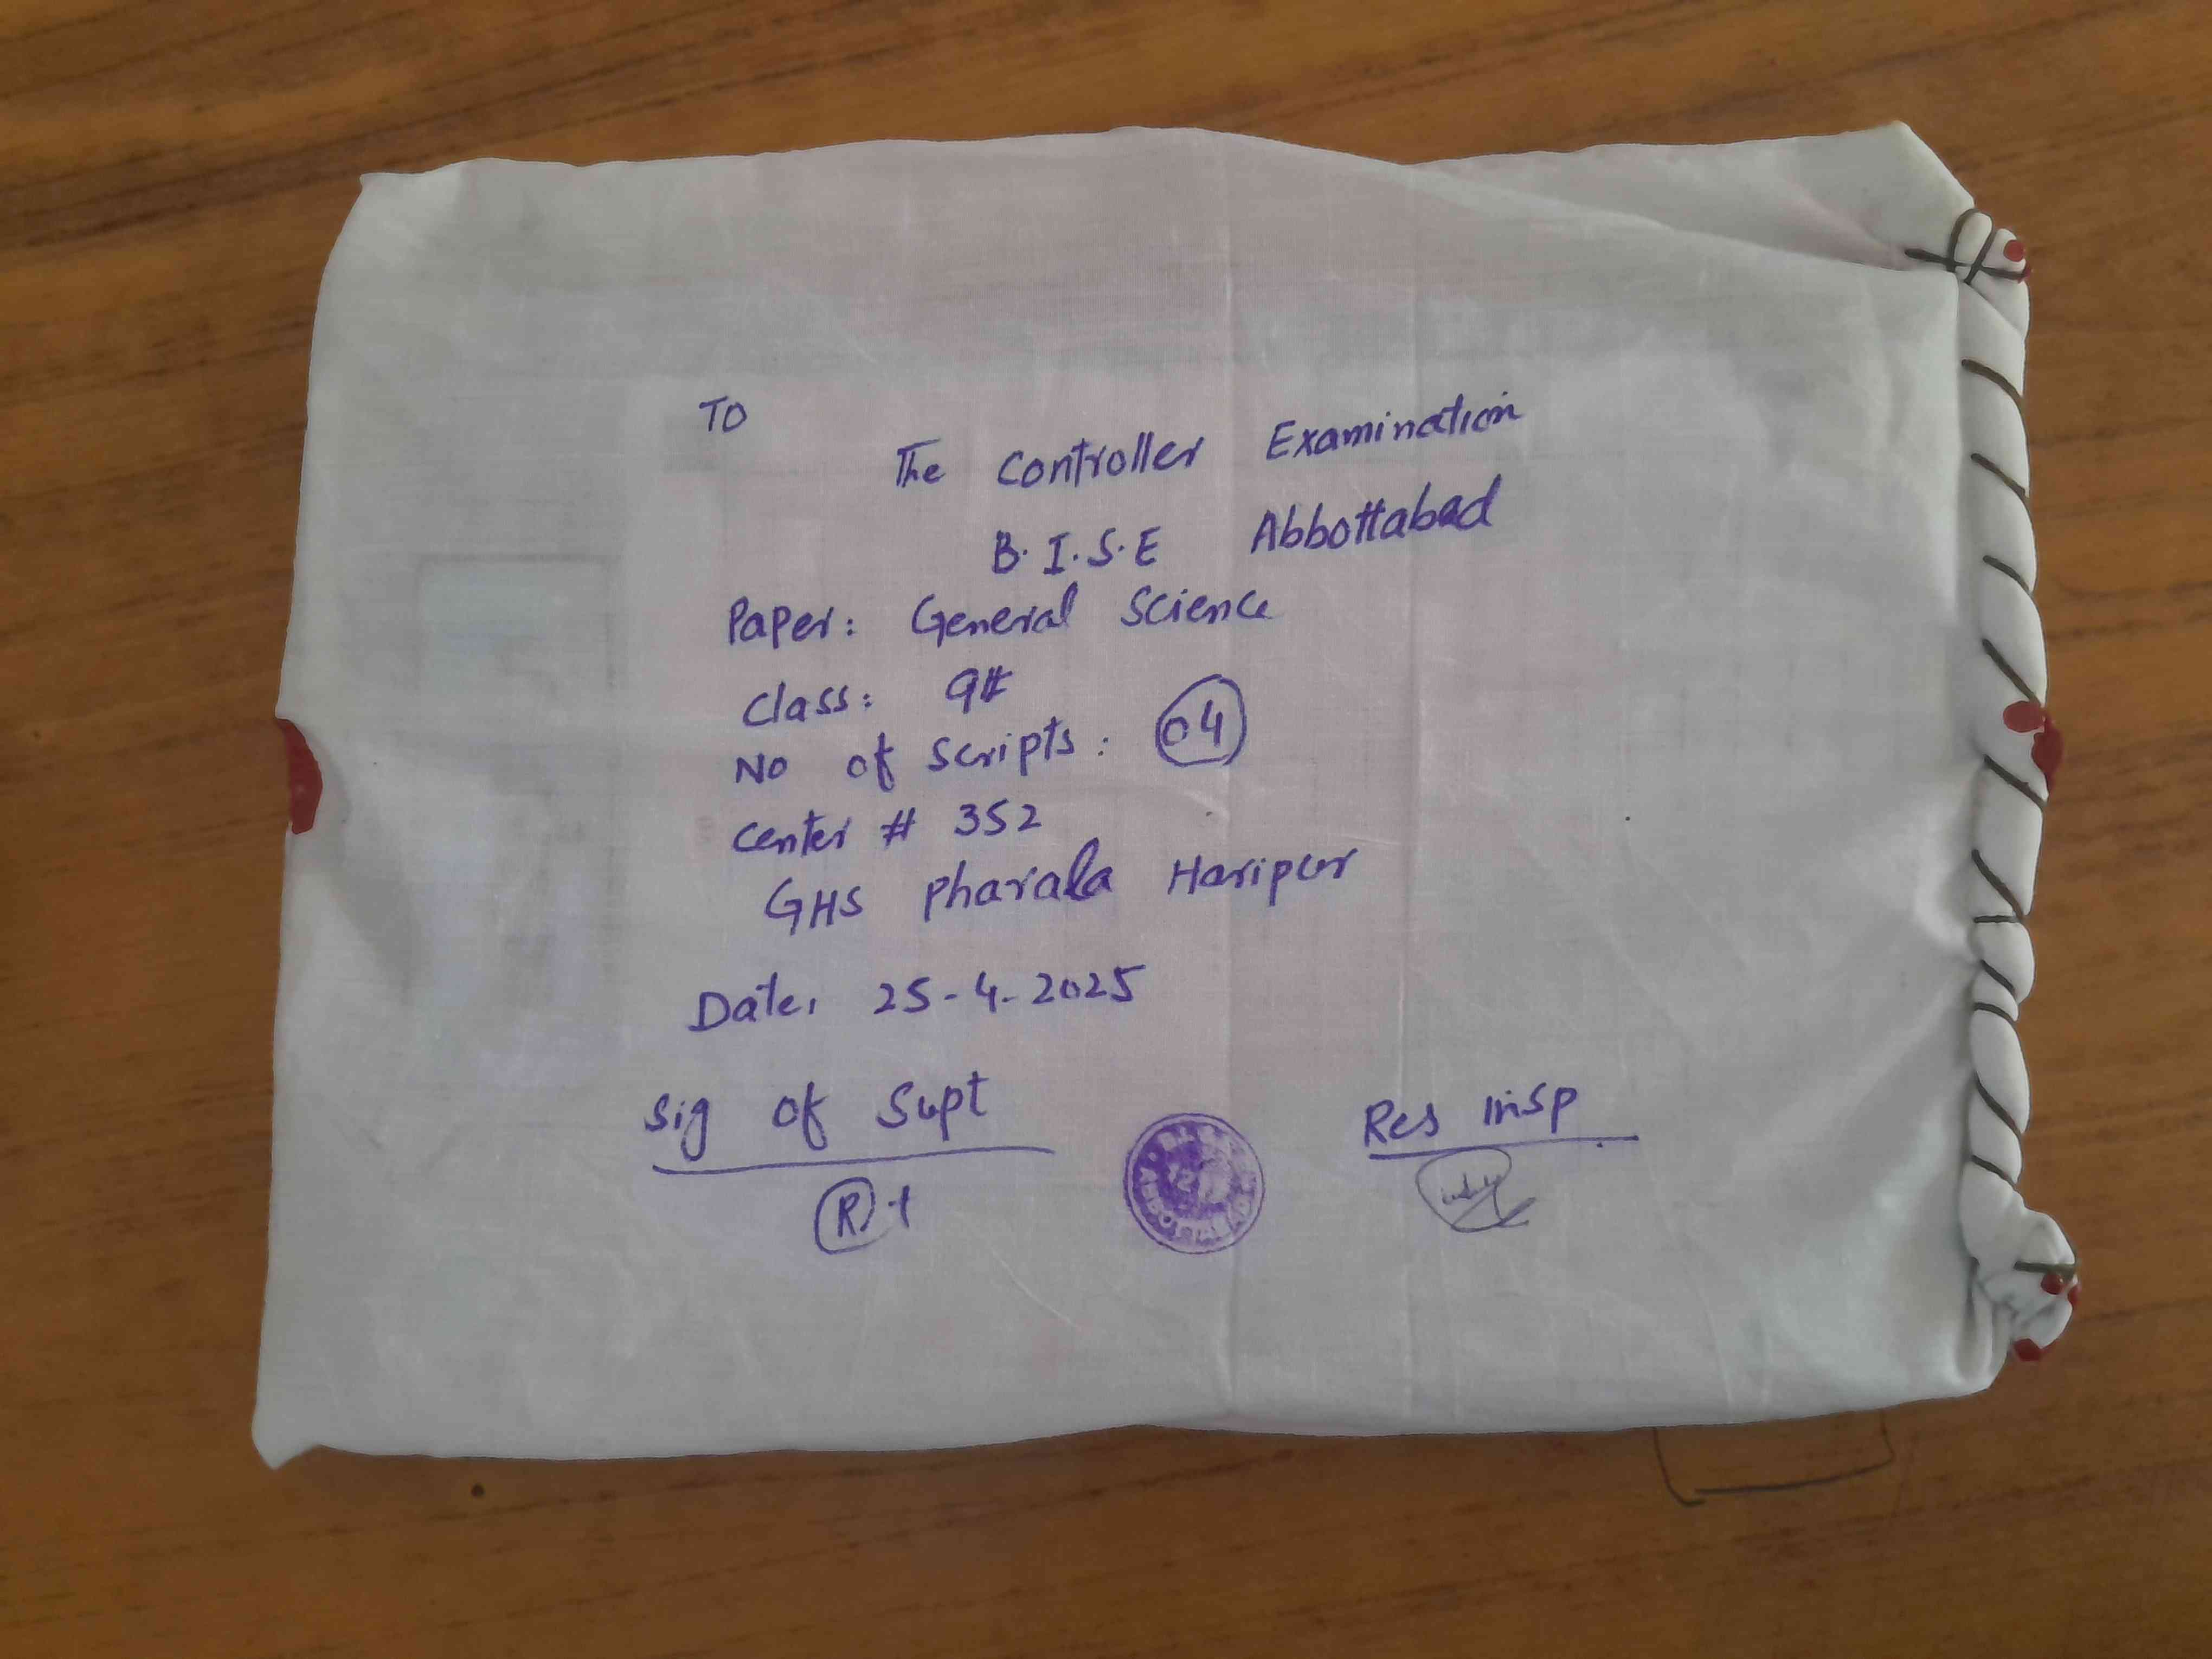 TO
The Controller Examination
B.I.S.E Abbottabad
Paper: General Science
Class: 9th
No of Scripts: 04
Center # 352
GHS Pharala Haripur
Date: 25-4-2025
Sig of Supt
Res Insp